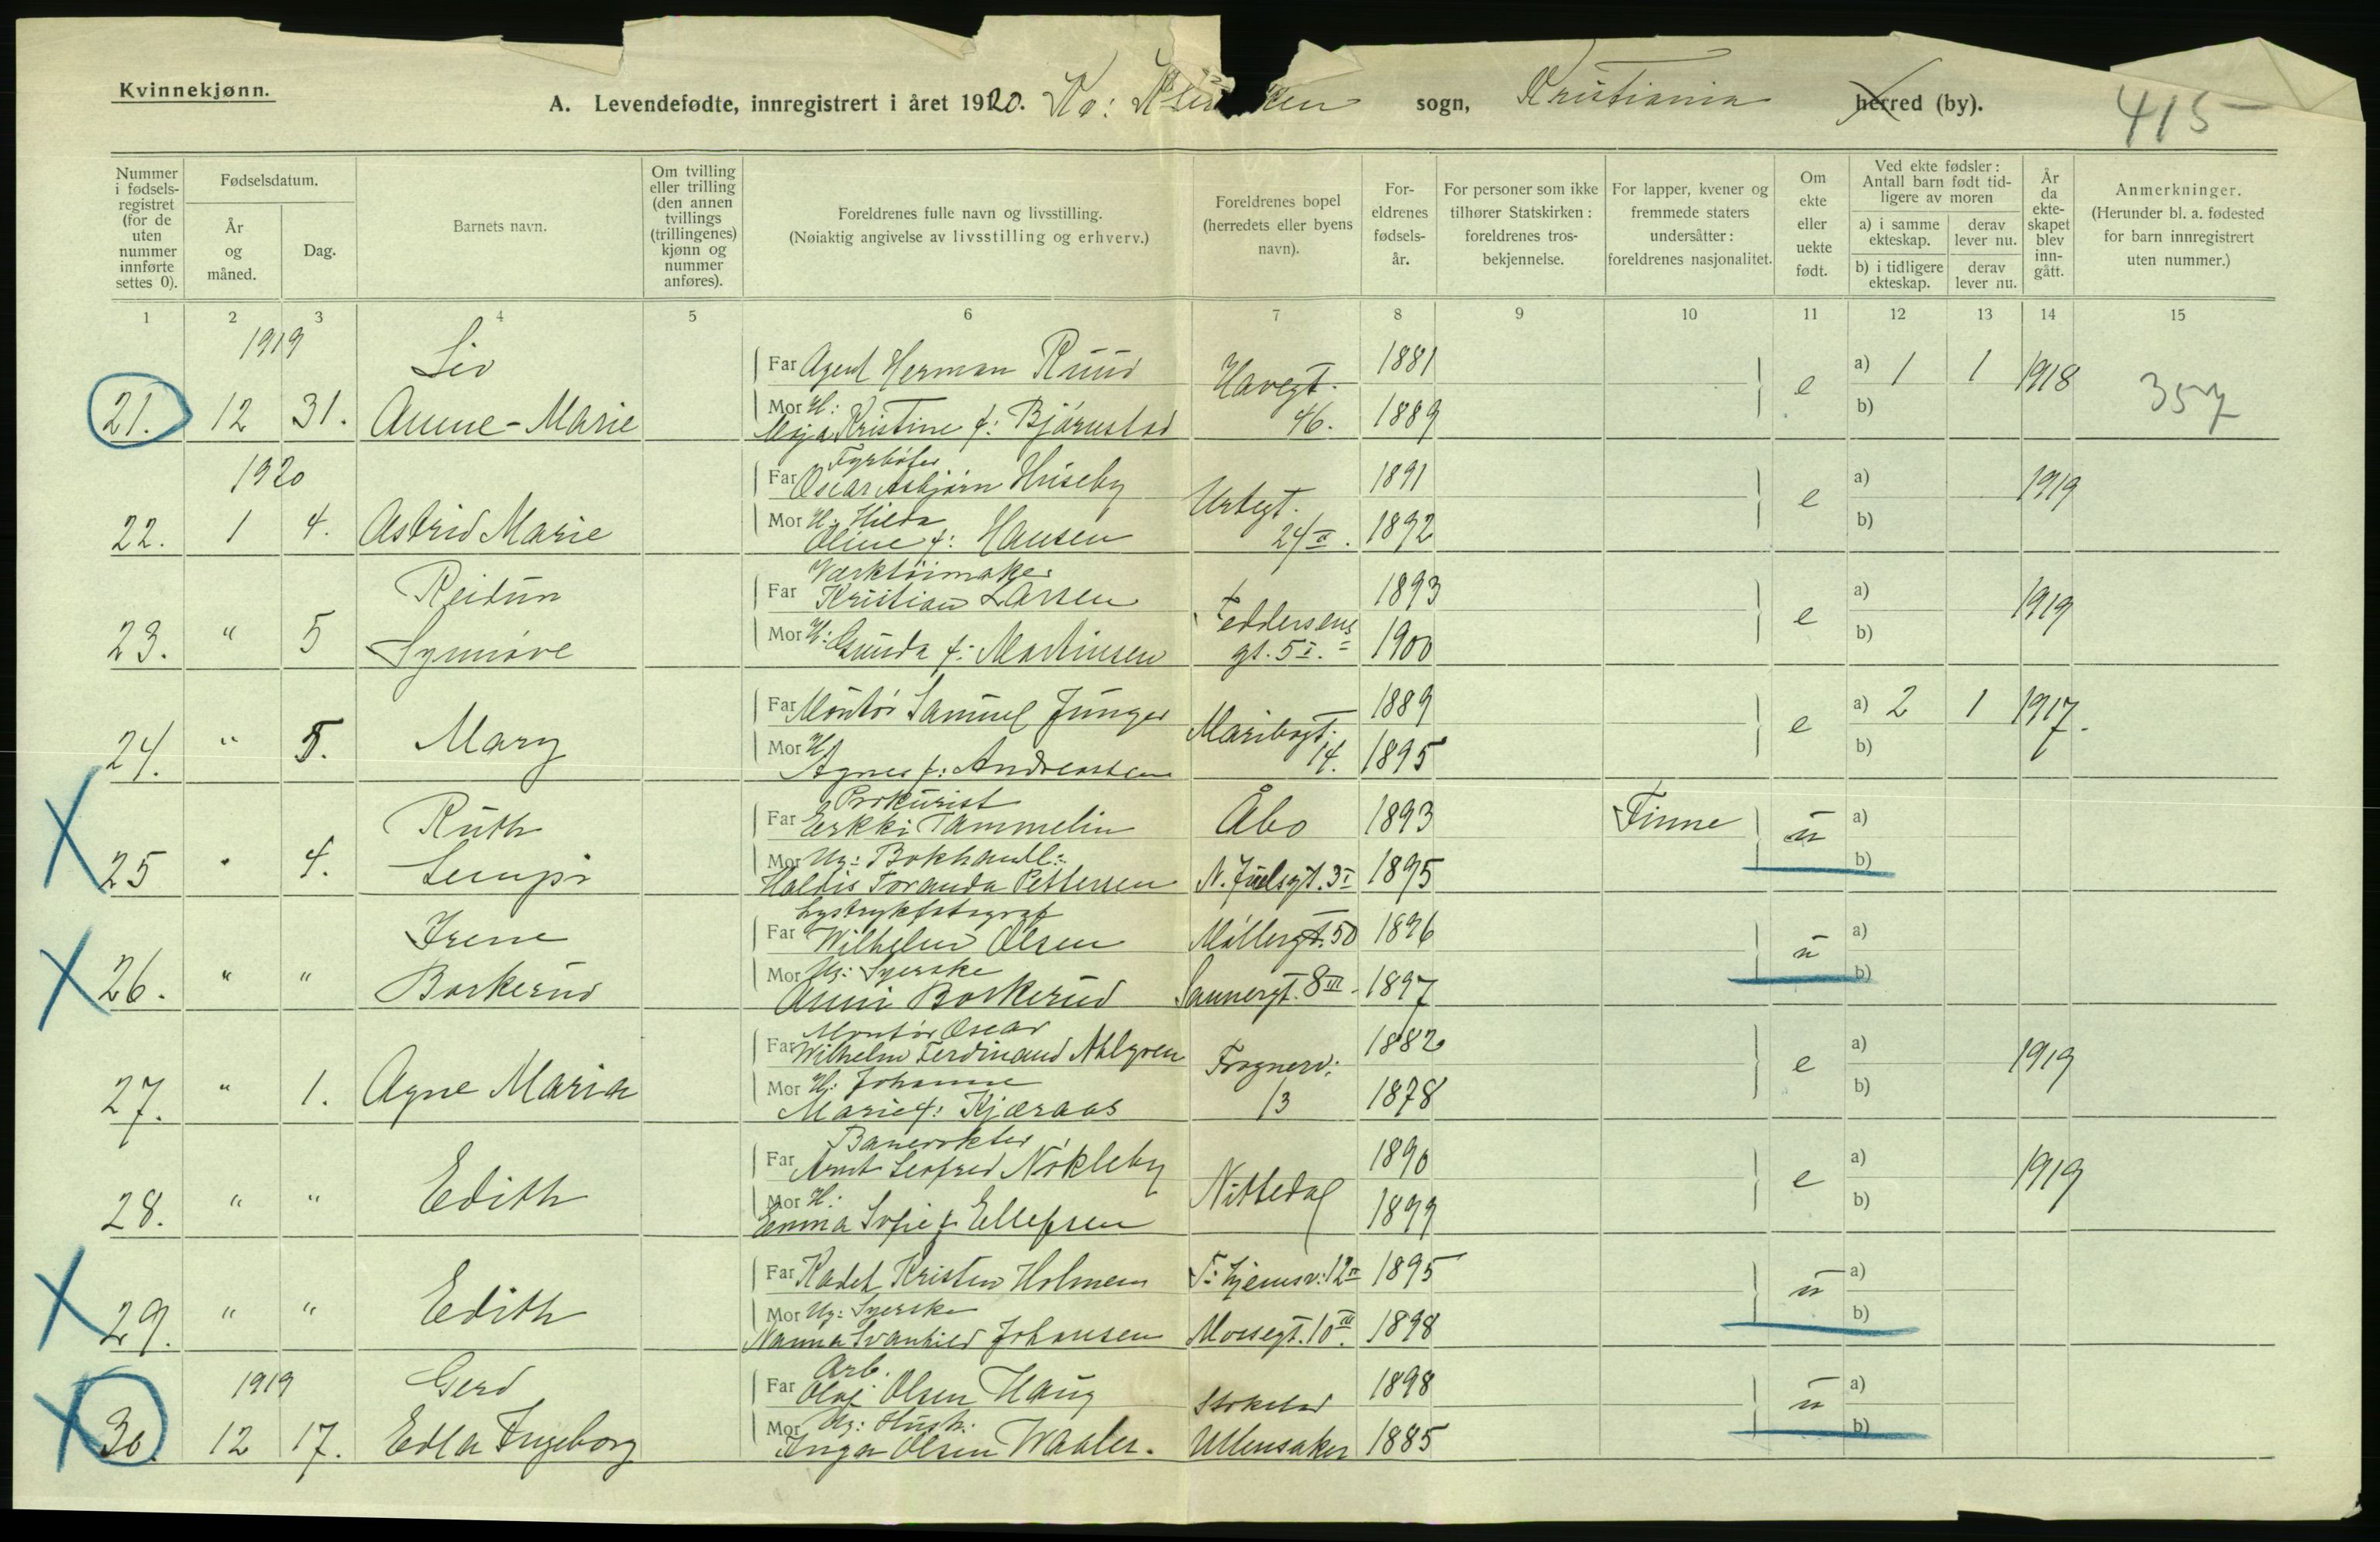 Kvinnekjønn.
A. Levendefødte, innregistrert i året 1920. Kv: Kli ken sogn, Kristiania herred (by).
415
Nummer i fødsels-registret (for de uten nummer innførte settes 0).
Fødselsdatum.
År og måned.
Dag.
Barnets navn.
Om tvilling eller trilling (den annen tvillings (trillingenes) kjønn og nummer anføres).
Foreldrenes fulle navn og livsstilling.
(Nøiaktig angivelse av livsstilling og erhverv.)
Foreldrenes bopel (herredets eller byens navn).
For-eldrenes fødsels-år.
For personer som ikke tilhører Statskirken: foreldrenes tros-bekjennelse.
For lapper, kvener og fremmede staters undersåtter: foreldrenes nasjonalitet.
Om ekte eller uekte født.
Ved ekte fødsler: Antall barn født tid-ligere av moren
a) i samme ekteskap.
derav lever nu.
b) i tidligere ekteskap.
derav lever nu.
År da ekte-skapet blev inn-gått.
Anmerkninger.
(Herunder bl. a. fødested for barn innregistrert uten nummer.)
1 2 3 4 5 6 7 8 9 10 11 12 13 14 15
1919 Liv Far Agent Herman Ruud Havegt. 1881 e a) 1 1 1918 357
21. 12 31. Anne-Marie Mor H: Maja Kristine f: Bjørnstad 46. 1889 b)
1920 Far Fyrbøter Oscar Asbjørn Huseby Urtegt. 1891 e a) 1919
22. 1 4. Astrid Marie Mor H: Hilda Oline f: Hansen 24 II. 1892 b)
Reidun Far Værktøimaker Kristian Larsen Feddersens 1893 e a) 1919
23. " 5 Synnøve Mor H: Gunda f: Martinsen gt. 5 I. 1900 b)
Far Montør Samuel Junger Maribogt. 1889 e a) 2 1 1917.
24. " 5. Mary Mor H. Agnes f: Andreassen 14. 1895 b)
Ruth Far Prokurist Erkki Tammelin Åbo 1893 Finne u a)
25 " 4. Lempi Mor Ug: Bokhandl: Haldis Toranda Pettersen N. Juelsgt. 3 I 1895 b)
Irene Far Lystrykfotograf Wilhelm Olsen Møllergt. 50 1896 u a)
26. " " Borkerud Mor Ug: Syerske Anni Borkerud Sannergt. 8 III 1897 b)
Far Montør Oscar Wilhelm Ferdinand Ahlgren Frognerv: 1882 e a) 1919
27. " 1. Agne Maria Mor H: Johanne Marie f: Kjæraas 13 1878 b)
Far Banevokter Arnt Leofred Nøkleby Nittedal 1890 e a) 1919
28. " " Edith Mor H: Emma Sofie f Ellefsen 1899 b)
Far Kadet Kristen Holmen T: hjemsv: 12 II 1895 u a)
29. " " Edith Mor Ug: Syerske Nanna Svanhild Johansen Mossegt. 10 III. 1898 b)
1919 Gerd Far Arb. Olaf Olsen Haug Stokstad 1898 u a)
30. 12 17. Edla Ingeborg Mor Ug: Hush. Inga Olsen Waaler. Ullensaker 1885 b)